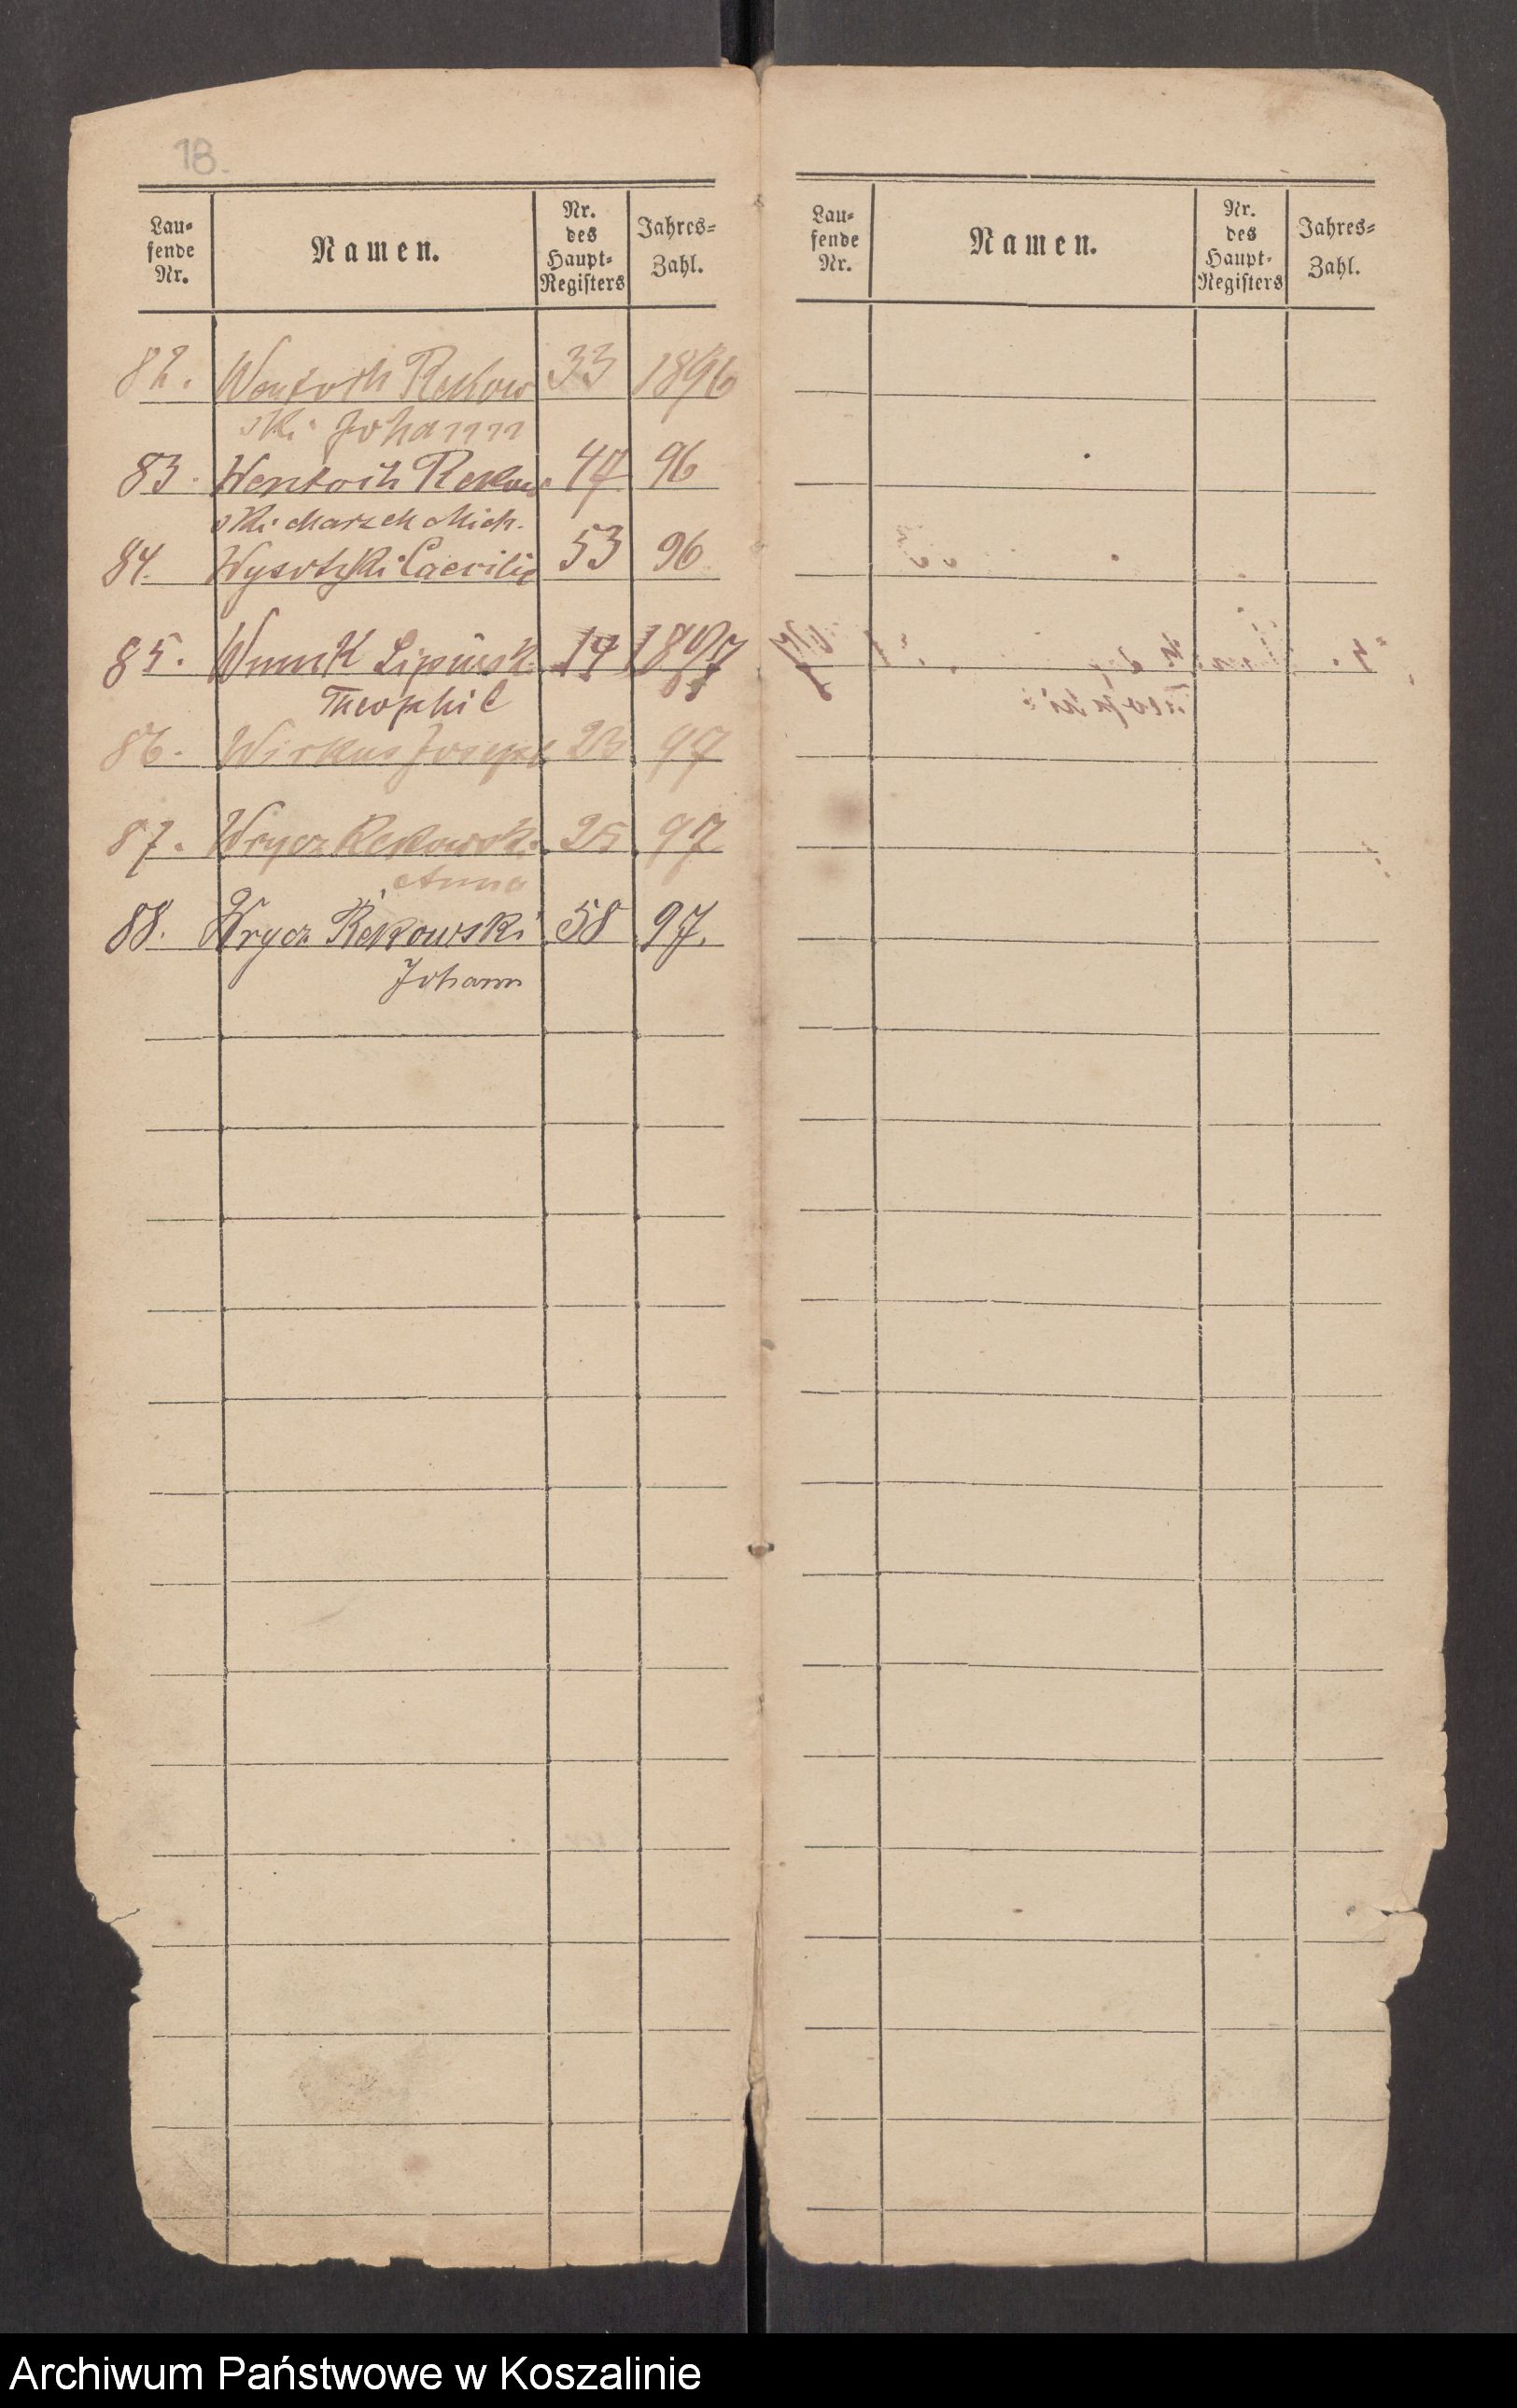 18.
Lau-
fende
Nr.
Namen.
Nr.
des
Haupt-
Registers
Jahres-
Zahl.
82. Wentoch Rekow 33 1896
ski Johann
83. Wentoch Rekow 47 96
ski Marzek Mich.
84. Wysotzki Caecilie 53 96
85. Wnuk Lipinsk. 19 1897
Theophil
86. Wirkus Joseph 23 97
87. Wrycz Rekowsk. 25 97
Anna
88. Wrycz Rekowski 58 97.
Johann
Lau-
fende
Nr.
Namen.
Nr.
des
Haupt-
Registers
Jahres-
Zahl.
Archiwum Państwowe w Koszalinie